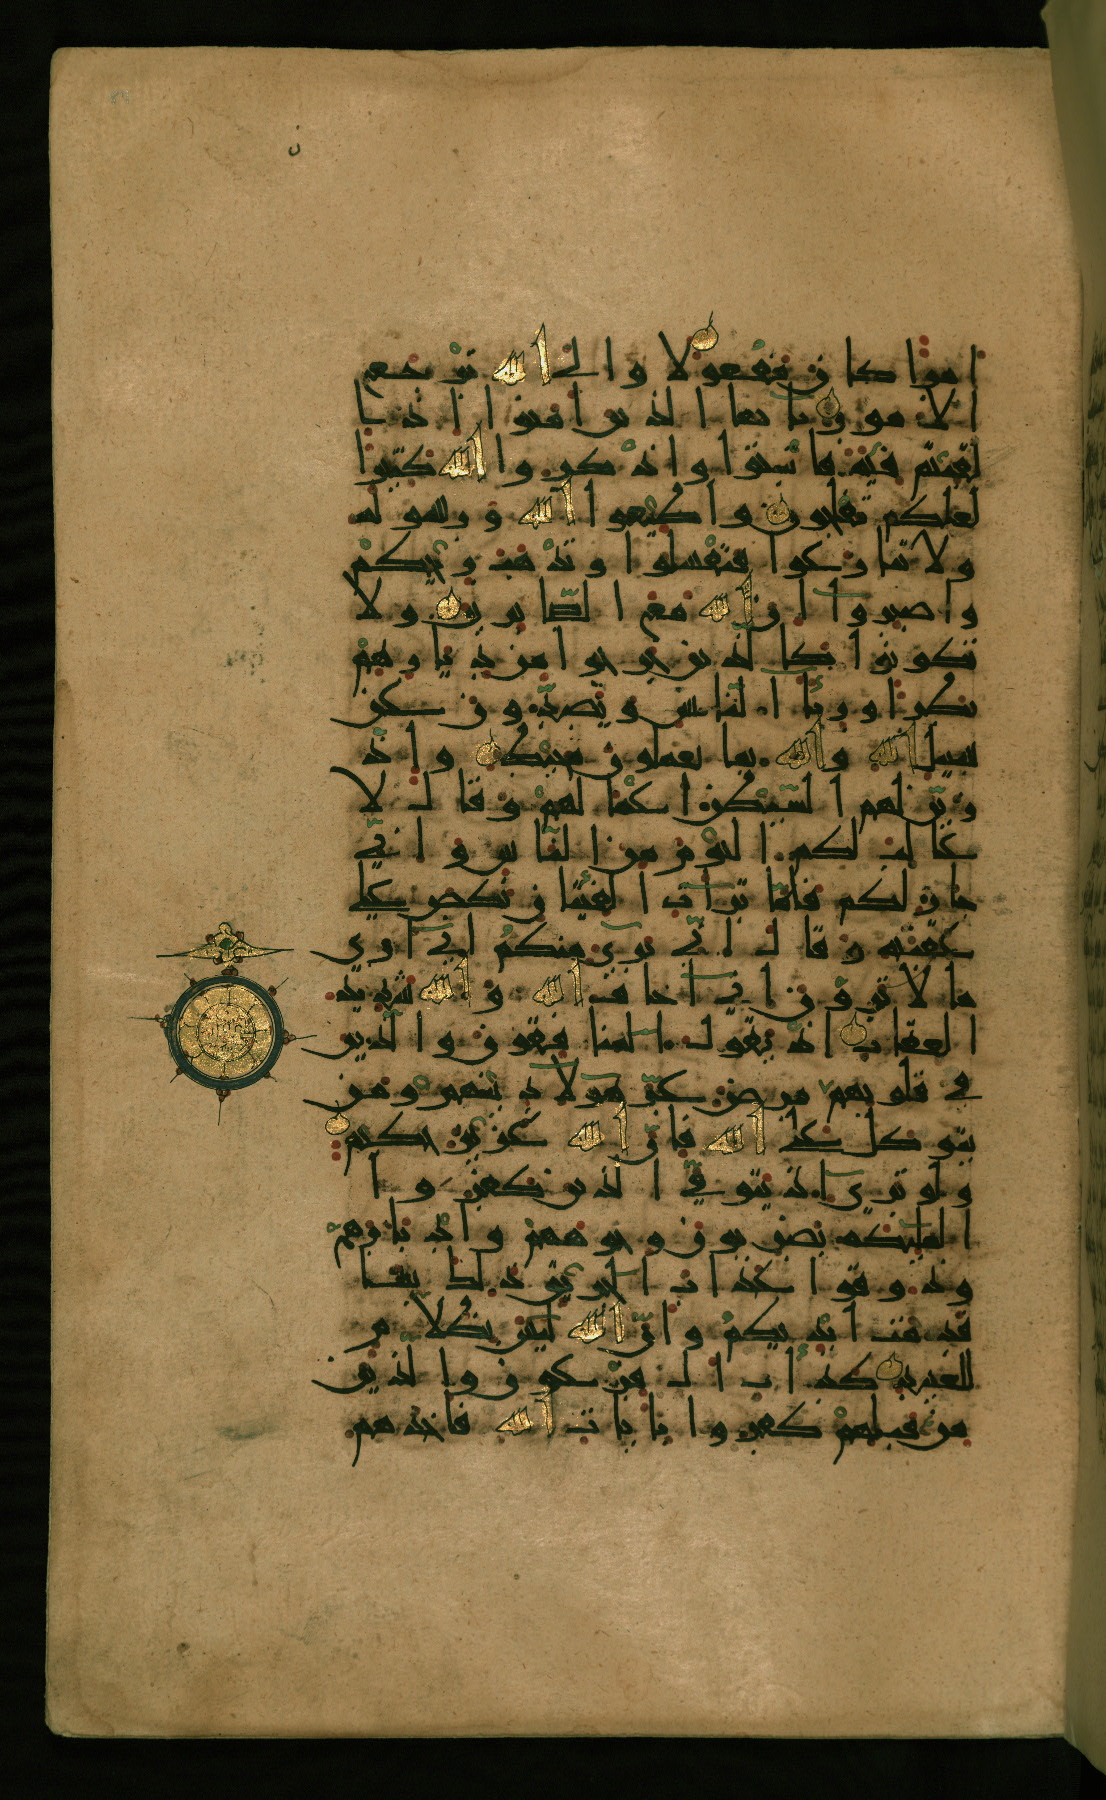 امرا كان مفعولا والى الله ترجع
الامور يايها الذين امنوا اذا
لقيتم فئة فاثبتوا واذكروا الله كثيرا
لعلكم تفلحون واطيعوا الله ورسوله
ولا تنازعوا فتفشلوا وتذهب ريحكم
واصبروا ان الله مع الصابرين ولا
تكونوا كالذين خرجوا من ديارهم
بطرا ورئا الناس ويصدون عن
سبيل الله والله بما يعملون محيط واذ
زين لهم الشيطن اعمالهم وقال لا
غالب لكم اليوم من الناس واني
جار لكم فلما تراءت الفئتان نكص على
عقبيه وقال اني بريء منكم اني ارى
ما لا ترون اني اخاف الله والله شديد
العقاب اذ يقول المنافقون والذين
في قلوبهم مرض غر هولا دينهم ومن
يتوكل على الله فان الله عزيز حكيم
ولو ترى اذ يتوفى الذين كفروا
الملئكة يضربون وجوههم وادبارهم
وذوقوا عذاب الحريق ذلك بما
قدمت ايديكم وان الله ليس بظلام
للعبيد كدأب ال فرعون والذين
من قبلهم كفروا بايات الله فاخذهم